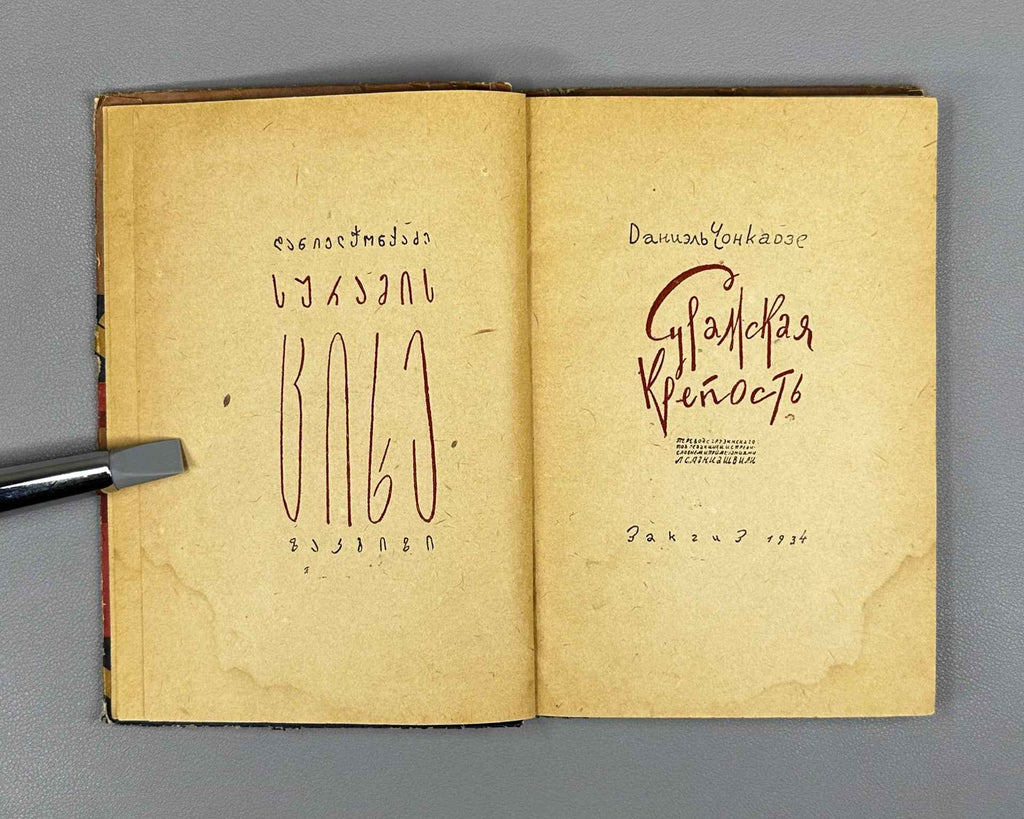 დანიელ ჭონქაძე
სურამის
ციხე
ზაკგიზი
Даниэль Чонкадзе
Сурамская
Крепость
Перевод с грузинского
под редакцией и с преди-
словием и примечаниями
Л. С. Агниашвили
Закгиз 1934